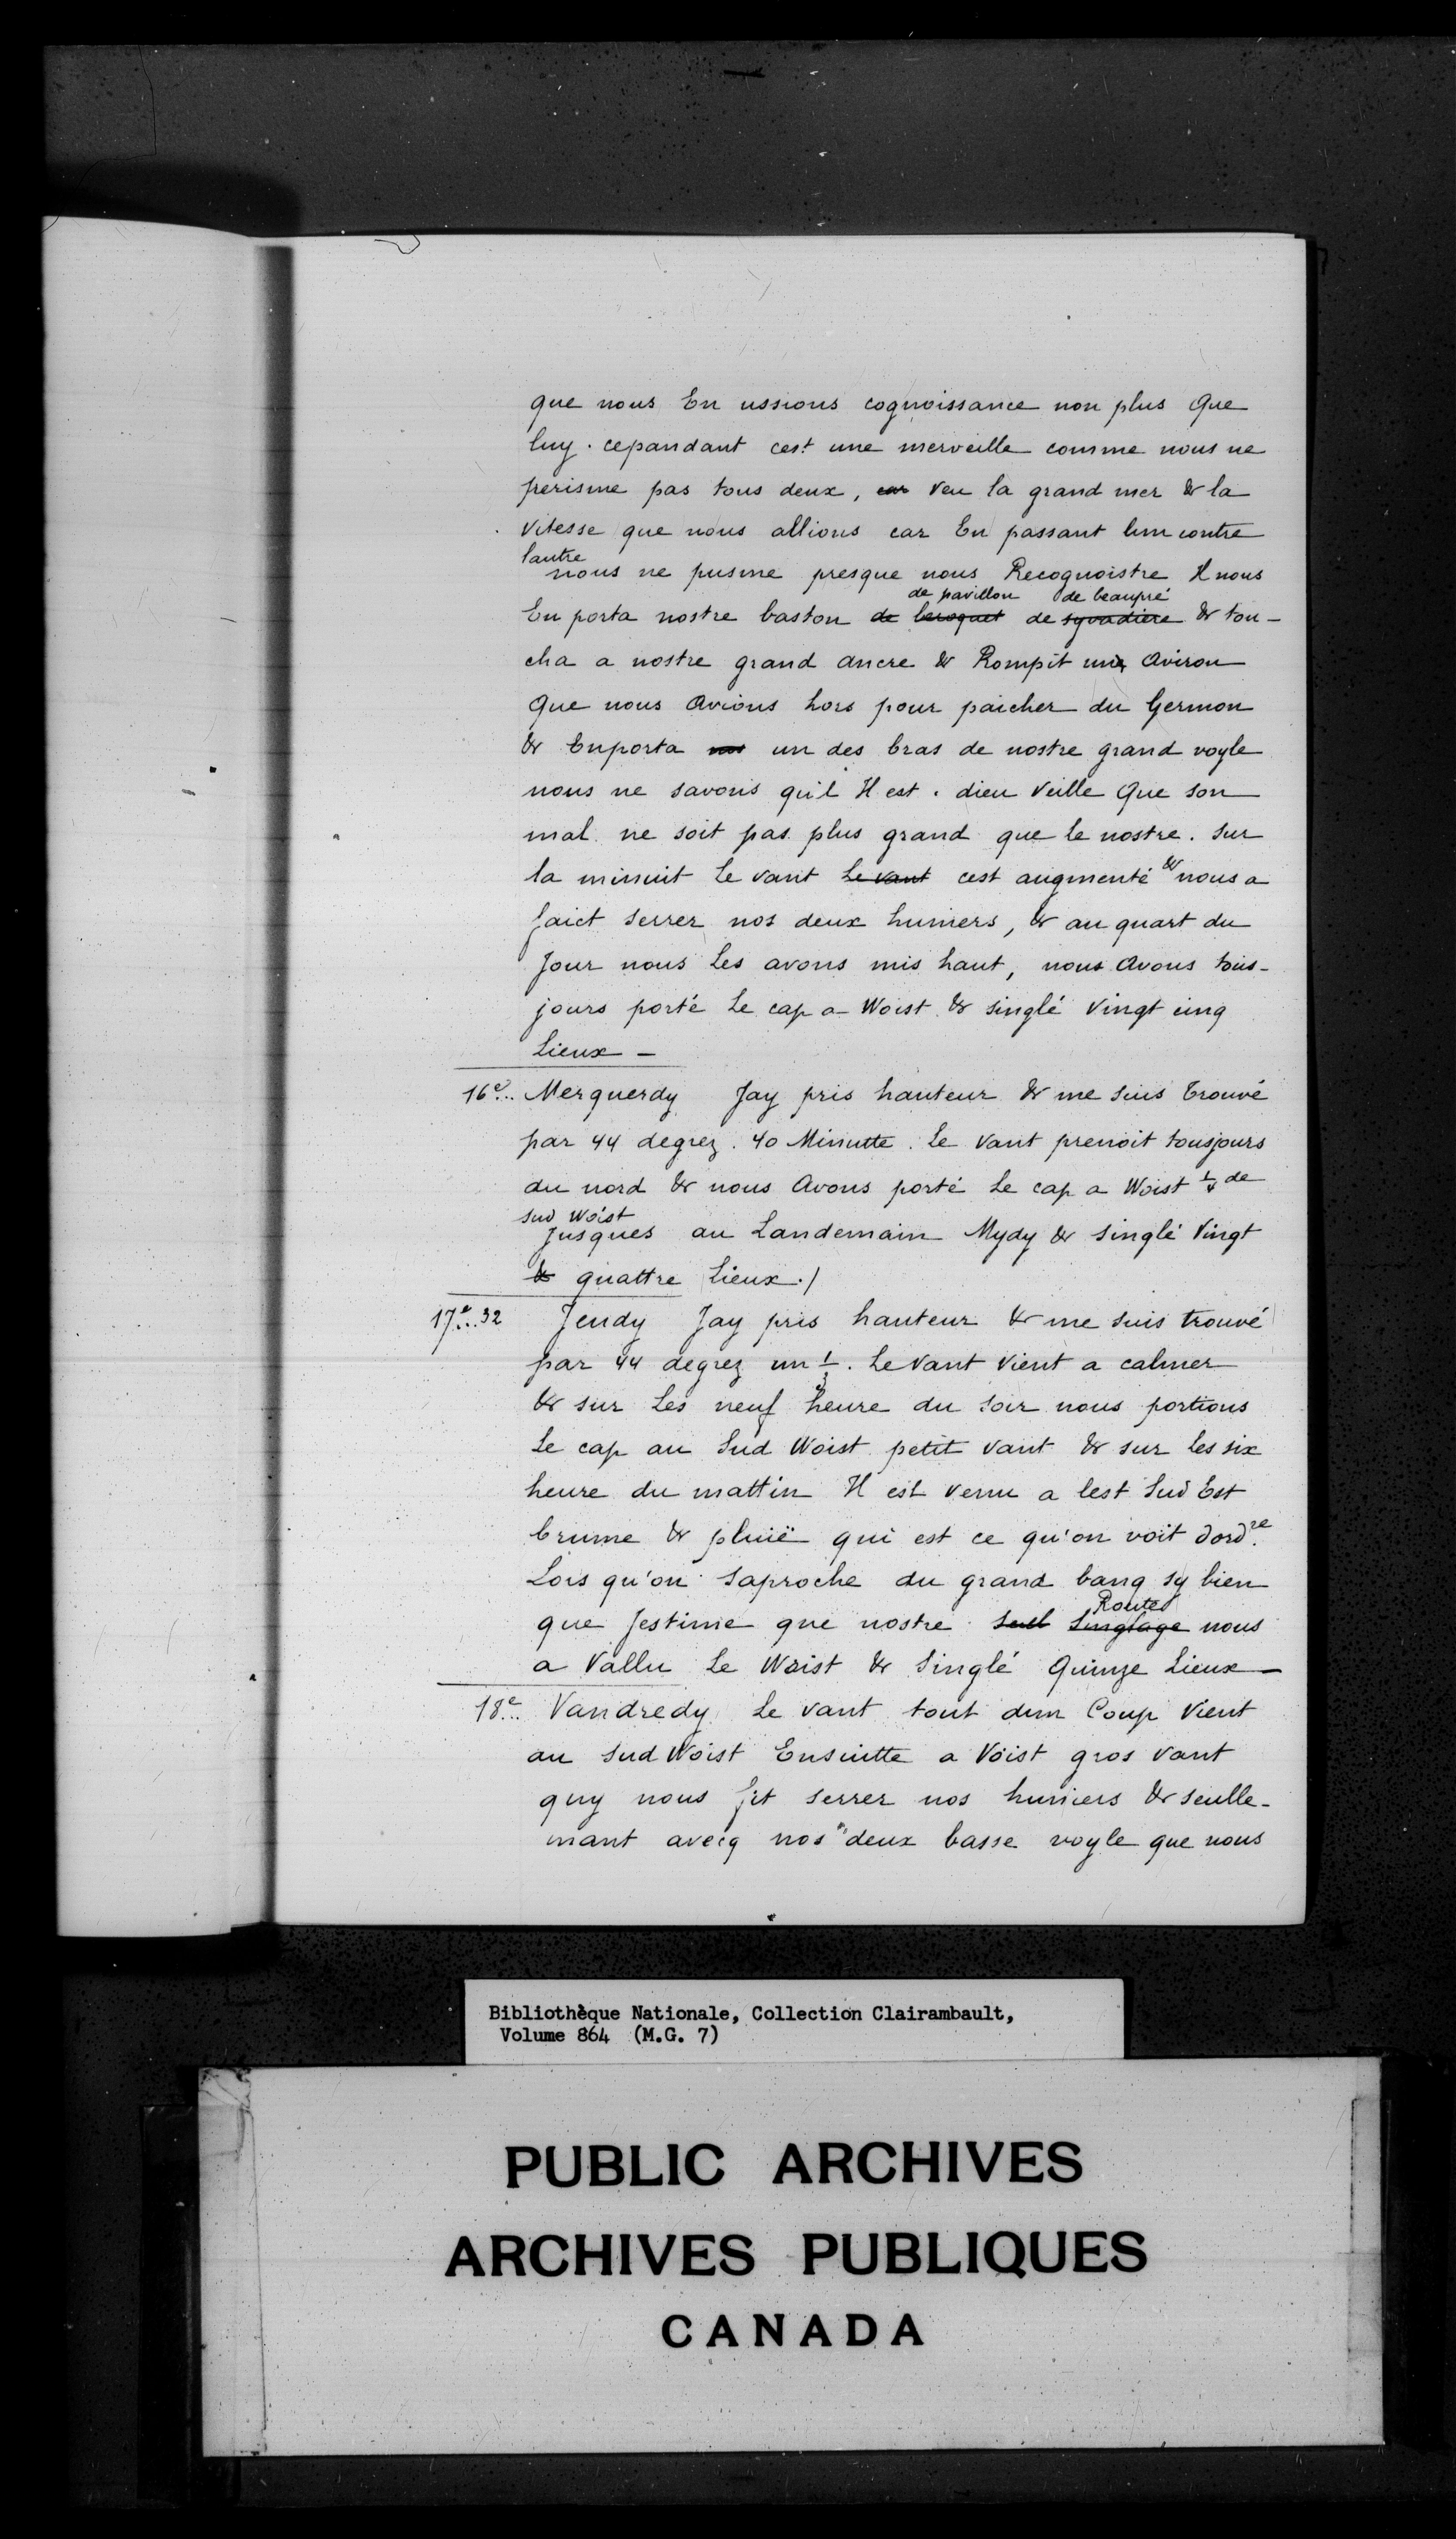 que nous En ussions cognoissance non plus Que
luy. cepandant cest une merveille comme nous ne
perisme pas tous deux, car veu la grand mer & la
vitesse que nous allions car En passant lun contre
lautre
nous ne pusme presque nous Recognoistre Il nous
de pavillon de beaupré
En porta nostre baston de beroquet de syvadiere & tou-
cha a nostre grand ancre & Rompit une aviron
Que nous Avions hors pour paicher du Germon
& Enporta nos un des bras de nostre grand voyle
nous ne savons qu'il Il est. dieu veille Que son
mal ne soit pas plus grand que le nostre. Sur
la minuit Le vant Le vant cest augmenté & nous a
faict serrer nos deux huniers, & au quart du
Jour nous Les avons mis haut, nous Avons tous-
jours porté Le cap a Woist & singlé vingt cinq
Lieux -
16e... Merquerdy Jay pris hauteur & me suis trouvé
par 44 degrez. 40 Minutte. Le vant prenoit tousjours
du nord & nous Avons porté Le cap a Woist 1/4 de
sud Woist
Jusques au Landemain Mydy & singlé Vingt
& quattre Lieux./
17e... 32 Jeudy Jay pris hauteur & me suis trouvé
par 44 degrez un 1/3. Le vant vient a calmer
& sur Les neuf heure du soir nous portions
Le cap au Sud Woist petit vant & sur Les six
heure du mattin Il est venu a lest Sud Est
brume & pluië qui est ce qu'on voit dord.re
Lors qu'on saproche du grand banq sy bien
Routes
que Jestime que nostre seul Singlage nous
a Vallu Le Woist & Singlé Quinze Lieux -
18e... Vandredy Le vant tout dun Coup Vient
au Sud Woist Ensuitte a Voist gros vant
quy nous fit serrer nos huniers & seulle-
mant avecq nos deux basse voyle que nous
Bibliothèque Nationale, Collection Clairambault,
Volume 864 (M.G. 7)
PUBLIC ARCHIVES
ARCHIVES PUBLIQUES
CANADA